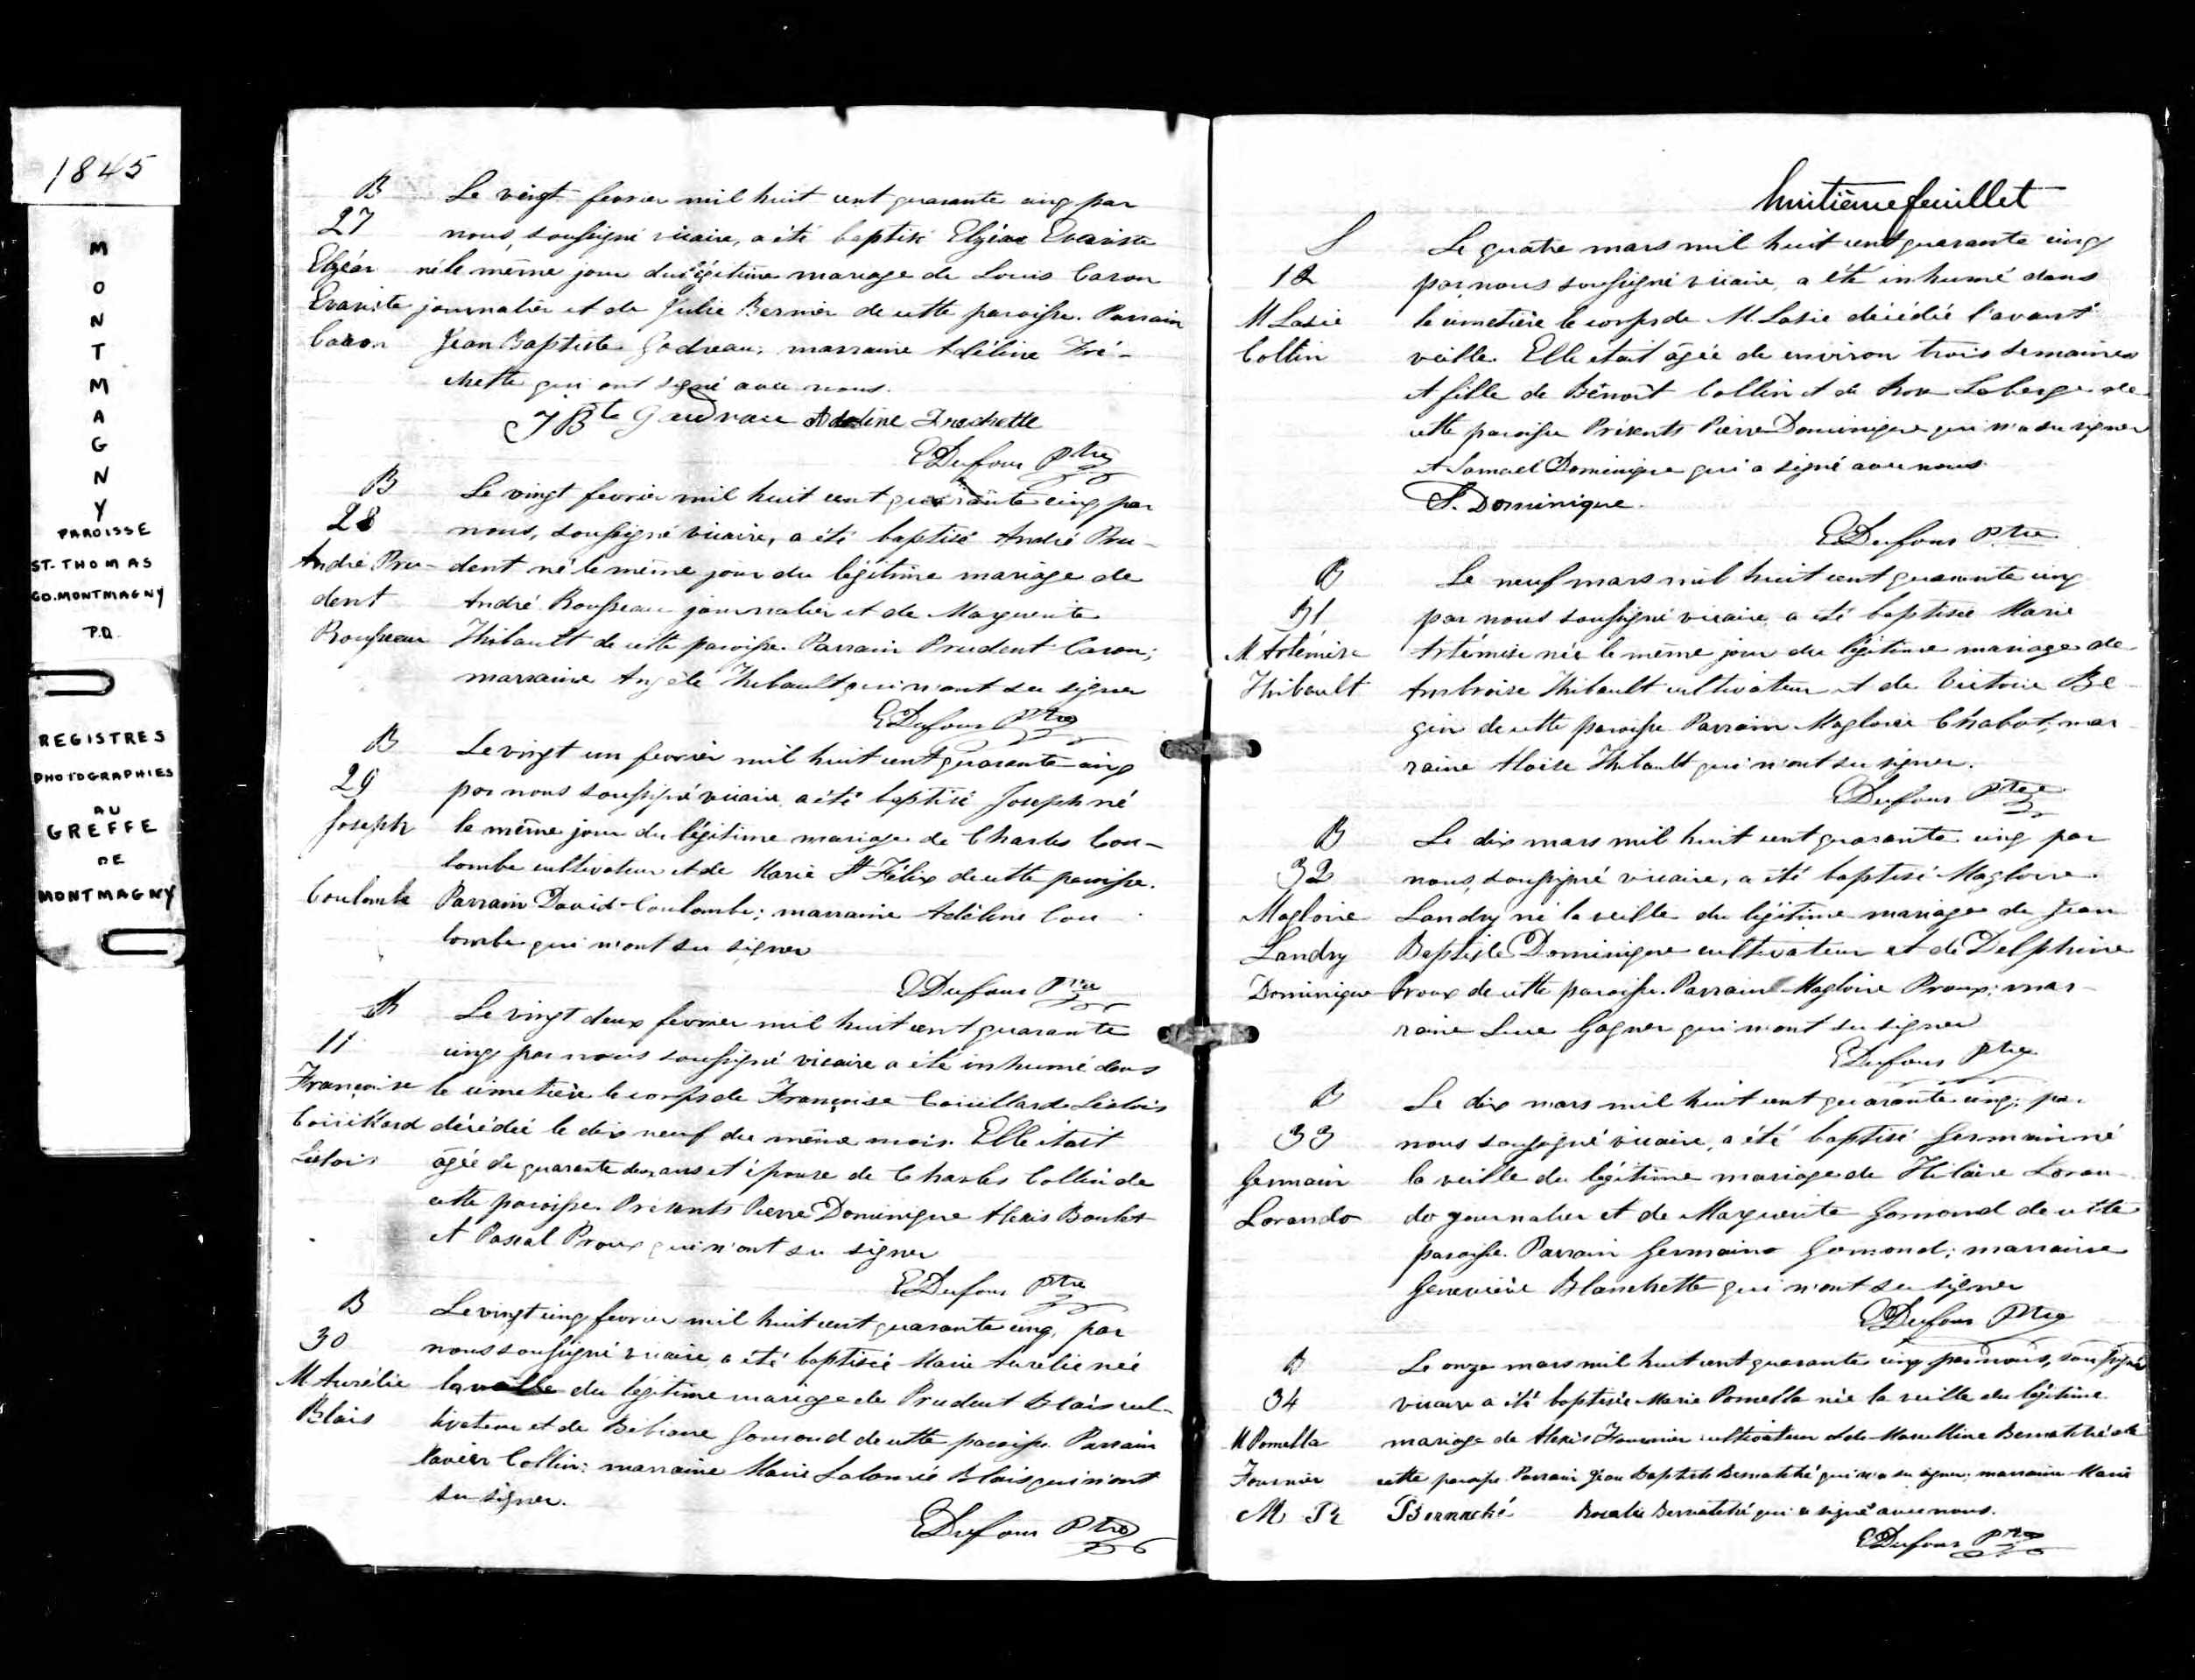 1845
MONTMAGNY
PAROISSE
ST. THOMAS
CO. MONTMAGNY
P.Q.
REGISTRES
PHOTOGRAPHIES
AU
GREFFE
DE
MONTMAGNY
B
27
Elzéar
Evariste
Caron
Le vingt fevrier mil huit cent quarante cinq par
nous, soussigné vicaire, a été baptisé Elzéar Evariste
né le même jour du légitime mariage de Louis Caron
journalier et de Julie Bernier de cette paroisse. Parrain
Jean Baptiste Godreau; marraine Adéline Fré-
chette qui ont signé avec nous.
J Bte Gaudrau Adeline Frechette
EDufour Ptre
B
28
André Pru-
dent
Rousseau
Le vingt fevrier mil huit cent quarante cinq par
nous, soussigné vicaire, a été baptisé André Pru-
dent né le même jour du légitime mariage de
André Rousseau journalier et de Marguerite
Thibault de cette paroisse. Parrain Prudent Caron;
marraine Angèle Thibault qui n'ont su signer
EDufour Ptre
B
29
Joseph
Coulombe
Le vingt un fevrier mil huit cent quarante cinq
par nous soussigné vicaire a été baptisé Joseph né
le même jour du légitime mariage de Charles Cou-
lombe cultivateur et de Marie St Félix de cette paroisse.
Parrain David Coulombe; marraine Adéline Cou-
lombe qui n'ont su signer
EDufour Ptre
11
Françoise
Couillard
Lislois
Le vingt deux fevrier mil huit cent quarante
cinq par nous soussigné vicaire a été inhumé dans
le cimetière le corps de Françoise Couillard Lislois
décédée le dix neuf du même mois. Elle était
âgée de quarante deux ans et épouse de Charles Collin de
cette paroisse. Présents Pierre Dominique Alexis Boulet
et Pascal Proux qui n'ont su signer
EDufour Ptre
B
30
M Aurélie
Blais
Le vingt cinq fevrier mil huit cent quarante cinq, par
nous soussigné vicaire, a été baptisée Marie Aurélie née
la veille du légitime mariage de Prudent Blais cul-
tivateur et de Bibiane Gomond de cette paroisse. Parrain
Xavier Collin; marraine Marie Salomée Blais qui n'ont
su signer.
EDufour Ptre
huitième feuillet
S
12
M Lasie
Collin
Le quatre mars mil huit cent quarante cinq
par nous soussigné vicaire, a été inhumé dans
le cimetière le corps de M. Lasie décédée l'avant
veille. Elle était âgée de environ trois semaines
et fille de Bênoît Collin et de Laberge de
cette paroisse Présents Pierre Dominique qui n'a su signer
et Samuel Dominique qui a signé avec nous
S. Dominique.
EDufour Ptre
B
31
M Artémise
Thibault
Le neuf mars mil huit cent quarante cinq
par nous soussigné vicaire a été baptisée Marie
Artémise née le même jour du légitime mariage de
Ambroise Thibault cultivateur et de Victoire Be-
gin de cette paroisse Parrain Magloire Chabot, mar-
raine Thibault qui n'ont su signer.
EDufour Ptre
B
32
Magloire
Landry
Dominique
Le dix mars mil huit cent quarante cinq par
nous, soussigné vicaire, a été baptisé Magloire
Landry né la veille du légitime mariage de Jean
Baptiste Dominique cultivateur et de Delphine
Proux de cette paroisse. Parrain Magloire Proux; mar-
raine Luce Gagner qui n'ont su signer
EDufour Ptre
B
33
Germain
Lorando
Le dix mars mil huit cent quarante cinq, par
nous soussigné vicaire, a été baptisé Germain né
la veille du légitime mariage de Hilaire Loran-
do journalier et de Marguerite Gomond de cette
paroisse. Parrain Germain Gomond; marraine
Geneviève Blanchette qui n'ont su signer
EDufour Ptre
B
34
M Pomella
Fournier
Le onze mars mil huit cent quarante cinq par nous, soussigné
vicaire a été baptisée Marie Pomella née la veille du légitime
mariage de Alexis Fournier cultivateur et de Marcelline Bernatché de
cette paroisse Parrain Jean Baptiste Bernatché qui n'a su signer; marraine Marie
M R Bernaché Rosalie Bernatché qui a signé avec nous.
EDufour Ptre